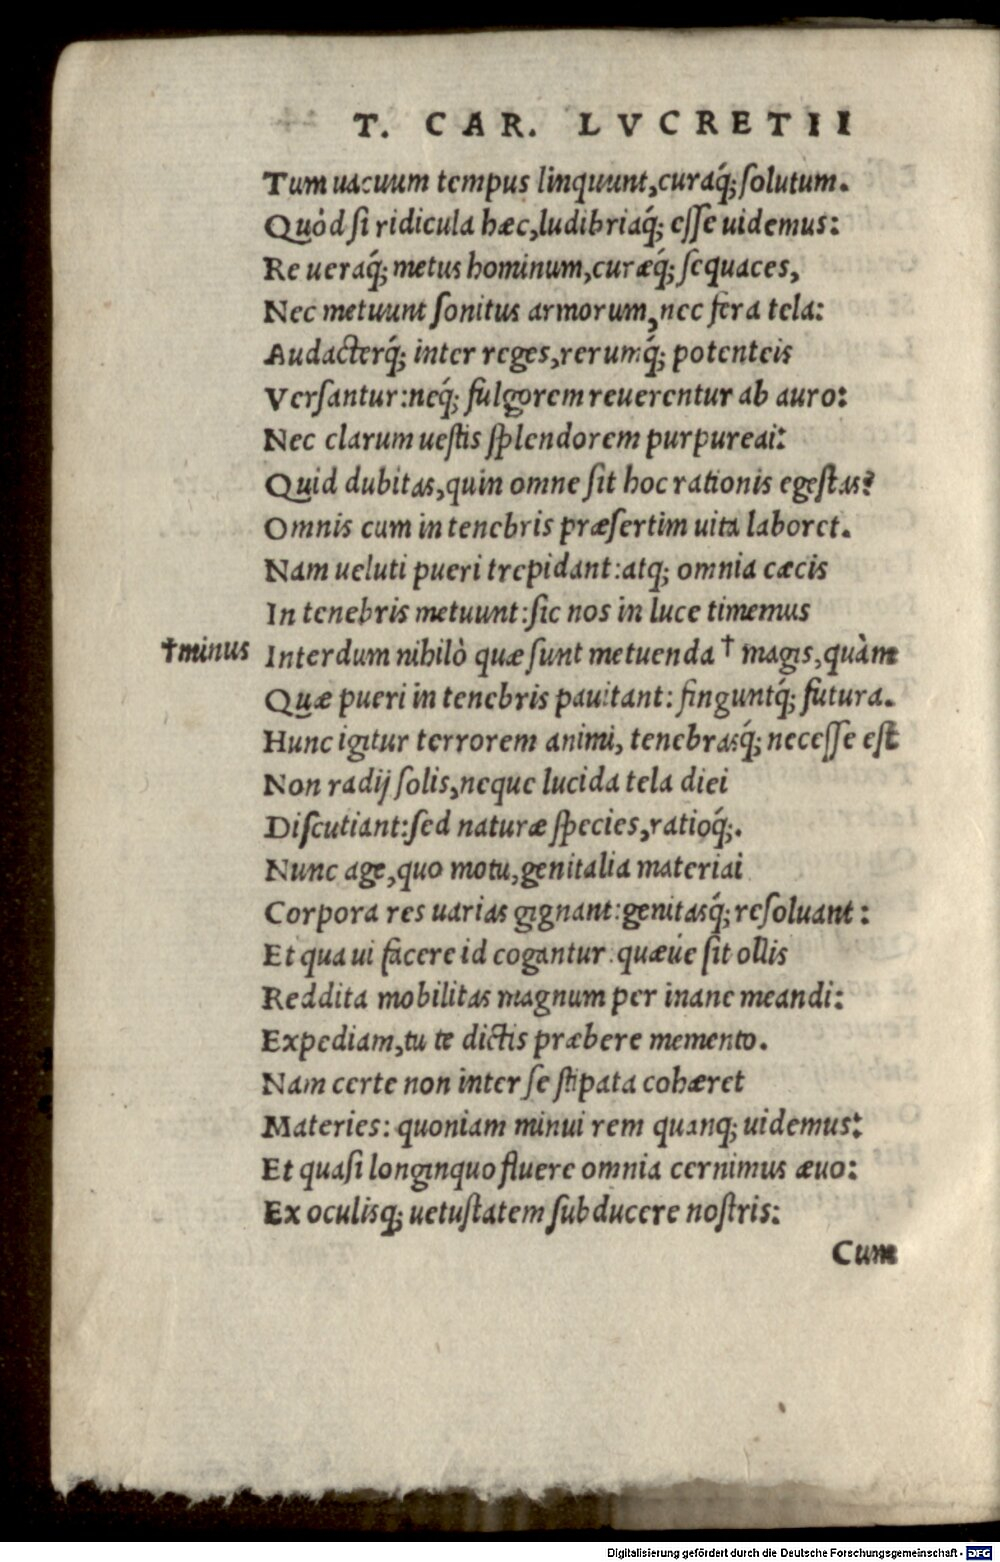 T. CAR. LVCRETII
Tum uacuum tempus linquunt,curaq́;solutum.
Quòd si ridicula hæc,ludibriaq́; esse uidemus:
Re ueraq́; metus hominum,curæq́; sequaces,
Nec metuunt sonitus armorum,nec fera tela:
Audacterq́; inter reges,rerumq́; potenteis
Versantur:neq́; fulgorem reuerentur ab auro:
Nec clarum uestis splendorem purpureai:
Quid dubitas,quin omne sit hoc rationis egestas?
Omnis cum in tenebris præsertim uita laboret.
Nam ueluti pueri trepidant:atq; omnia cæcis
In tenebris metuunt:sic nos in luce timemus
†minus Interdum nihilò quæ sunt metuenda † magis,quàm
Quæ pueri in tenebris pauitant: finguntq́; futura.
Hunc igitur terrorem animi, tenebrasq́; necesse est
Non radij solis,neque lucida tela diei
Discutiant:sed naturæ species,ratioq́;.
Nunc age,quo motu,genitalia materiai
Corpora res uarias gignant:genitasq́; resoluant :
Et qua ui facere id cogantur.quæúe sit ollis
Reddita mobilitas magnum per inane meandi:
Expediam,tu te dictis præbere memento.
Nam certe non inter se stipata cohæret
Materies: quoniam minui rem quanq; uidemus:
Et quasi longinquo fluere omnia cernimus æuo:
Ex oculisq; uetustatem subducere nostris:
Cum
Digitalisierung gefördert durch die Deutsche Forschungsgemeinschaft - DFG